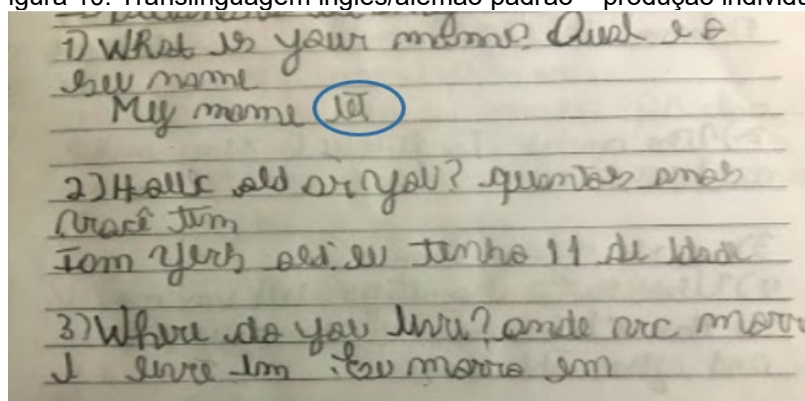 igura 10: Translinguagem inglês/alemão padrão – produção individu
1) What is your mame? Qual e o
seu nome
My mame ist
2) Hallc old ar you? quantos anos
você tem
Iam yers old. eu tenho 11 de Idade
3) Where do you livri? onde voc morr
I livre im . Eu morro em